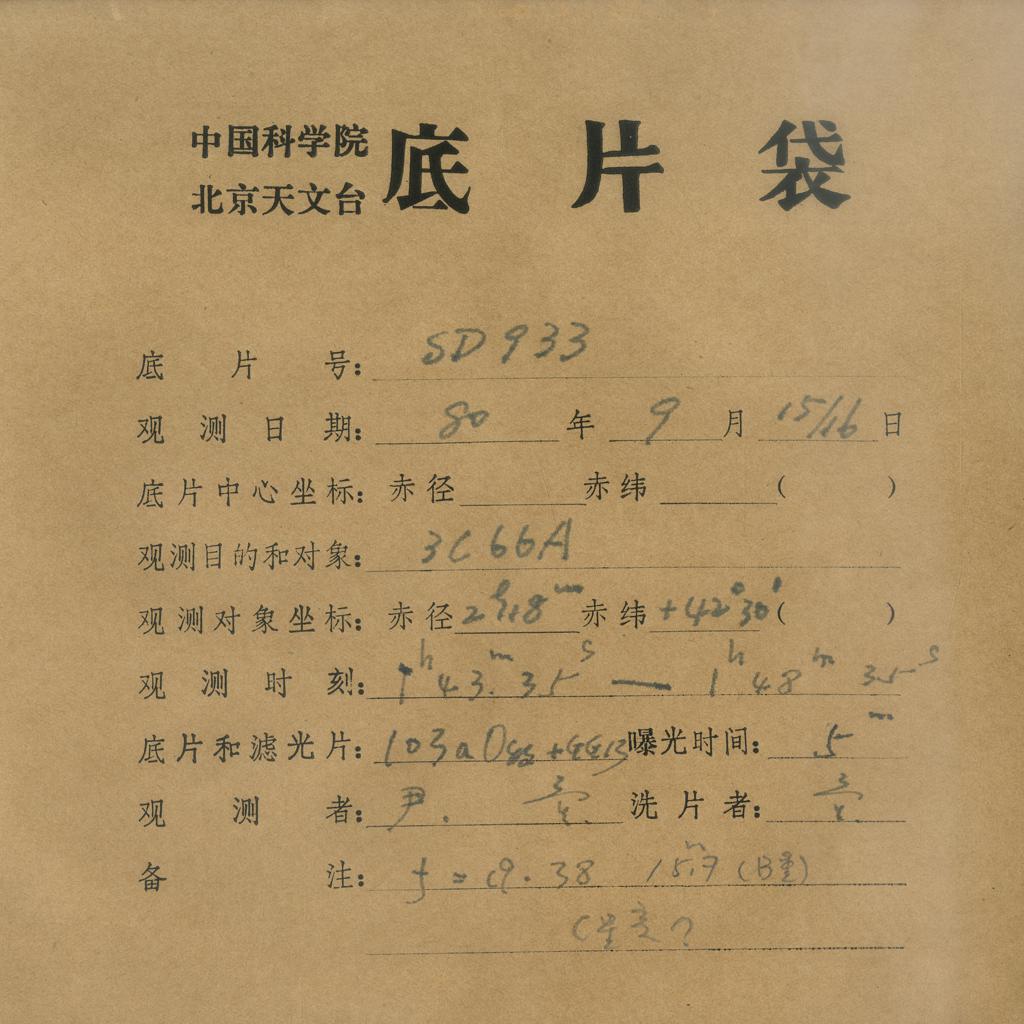 中国科学院
北京天文台
底片袋
底片号： SD933
观测日期： 80 年 9 月 15/16 日
底片中心坐标： 赤径 赤纬 （ ）
观测目的和对象： 3C66A
观测对象坐标： 赤径 2h18m 赤纬 +42°30′（ ）
观测时刻： 1h43m35s — 1h48m35s
底片和滤光片： 103aO 曝光时间： 5m
观测者： 尹. 洗片者：
备注： f = 19.38 15m.7 (B星)